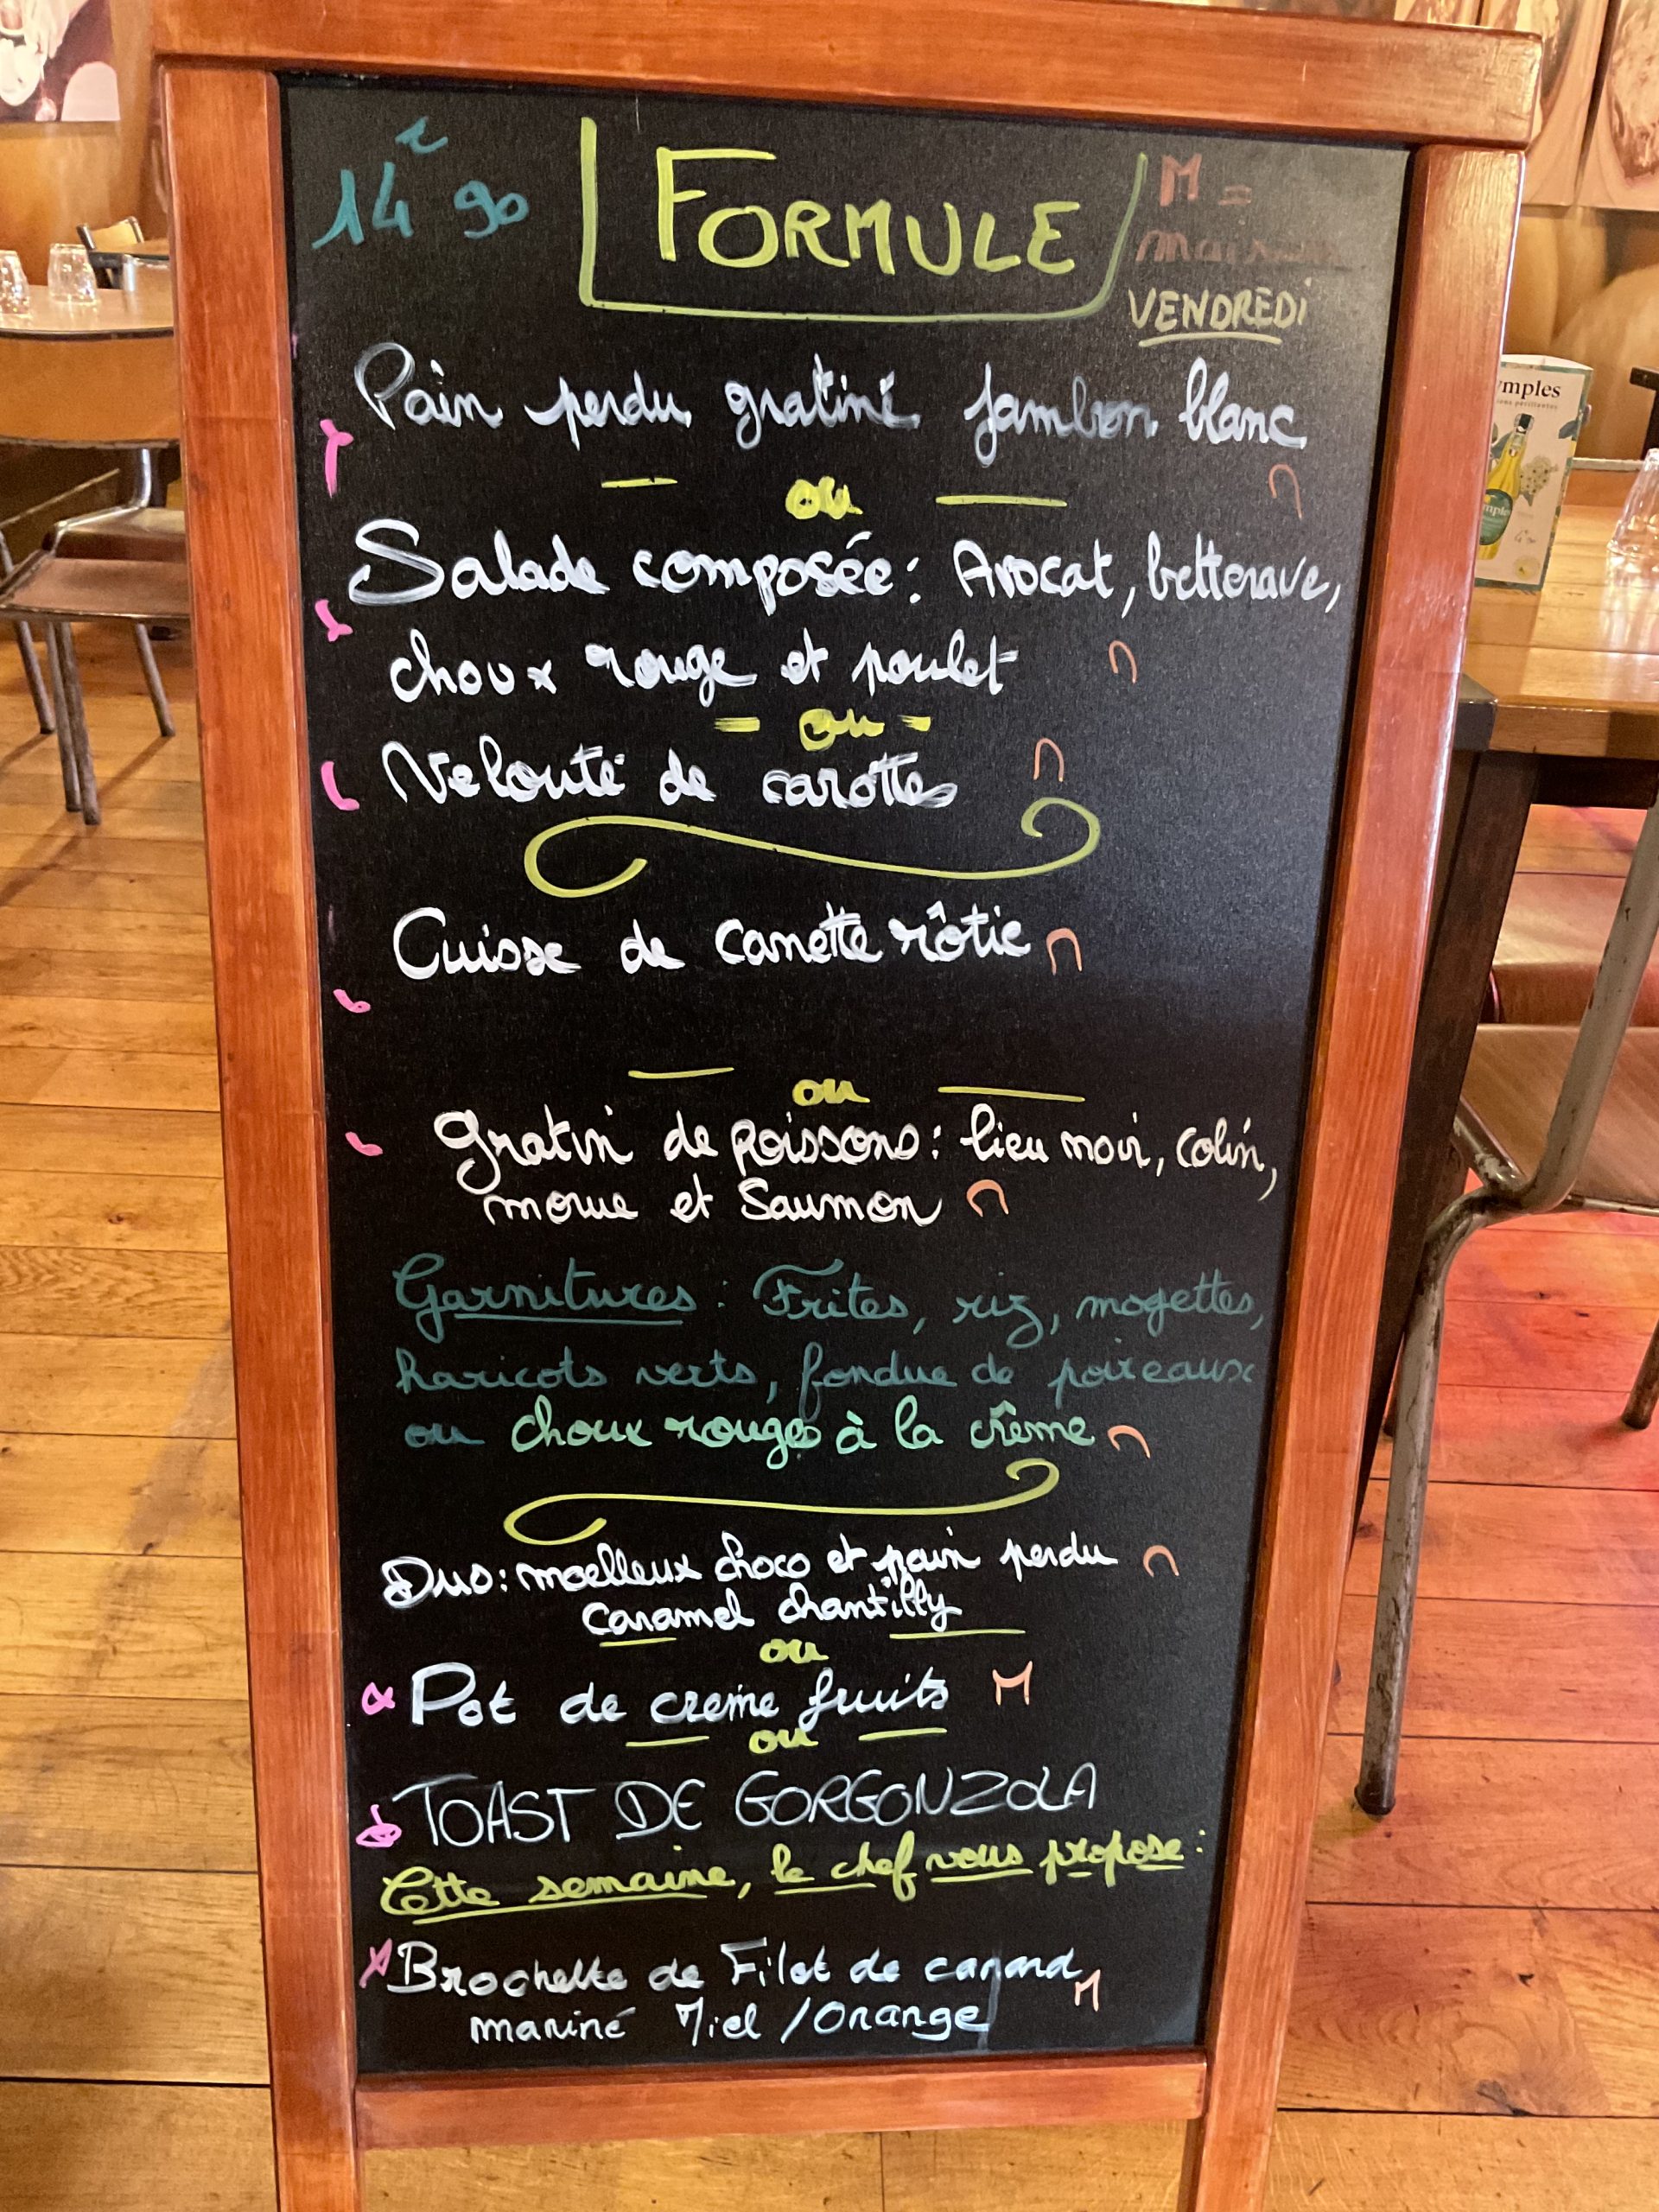 14€90
FORMULE
M =
maison
VENDREDI
Pain perdu gratiné jambon blanc
M
ou
Salade composée : Avocat, betterave,
choux rouge et poulet M
ou
Velouté de carottes M
Cuisse de canette rôtie M
ou
Gratin de poissons : lieu noir, colin,
morue et Saumon M
Garnitures : Frites, riz, mogettes,
haricots verts, fondue de poireaux
ou choux rouges à la crème M
Duo : moelleux choco et pain perdu M
caramel chantilly
ou
Pot de creme fruits M
ou
TOAST DE GORGONZOLA
Cette semaine, le chef vous propose :
Brochette de Filet de canard M
mariné Miel / Orange
ymples